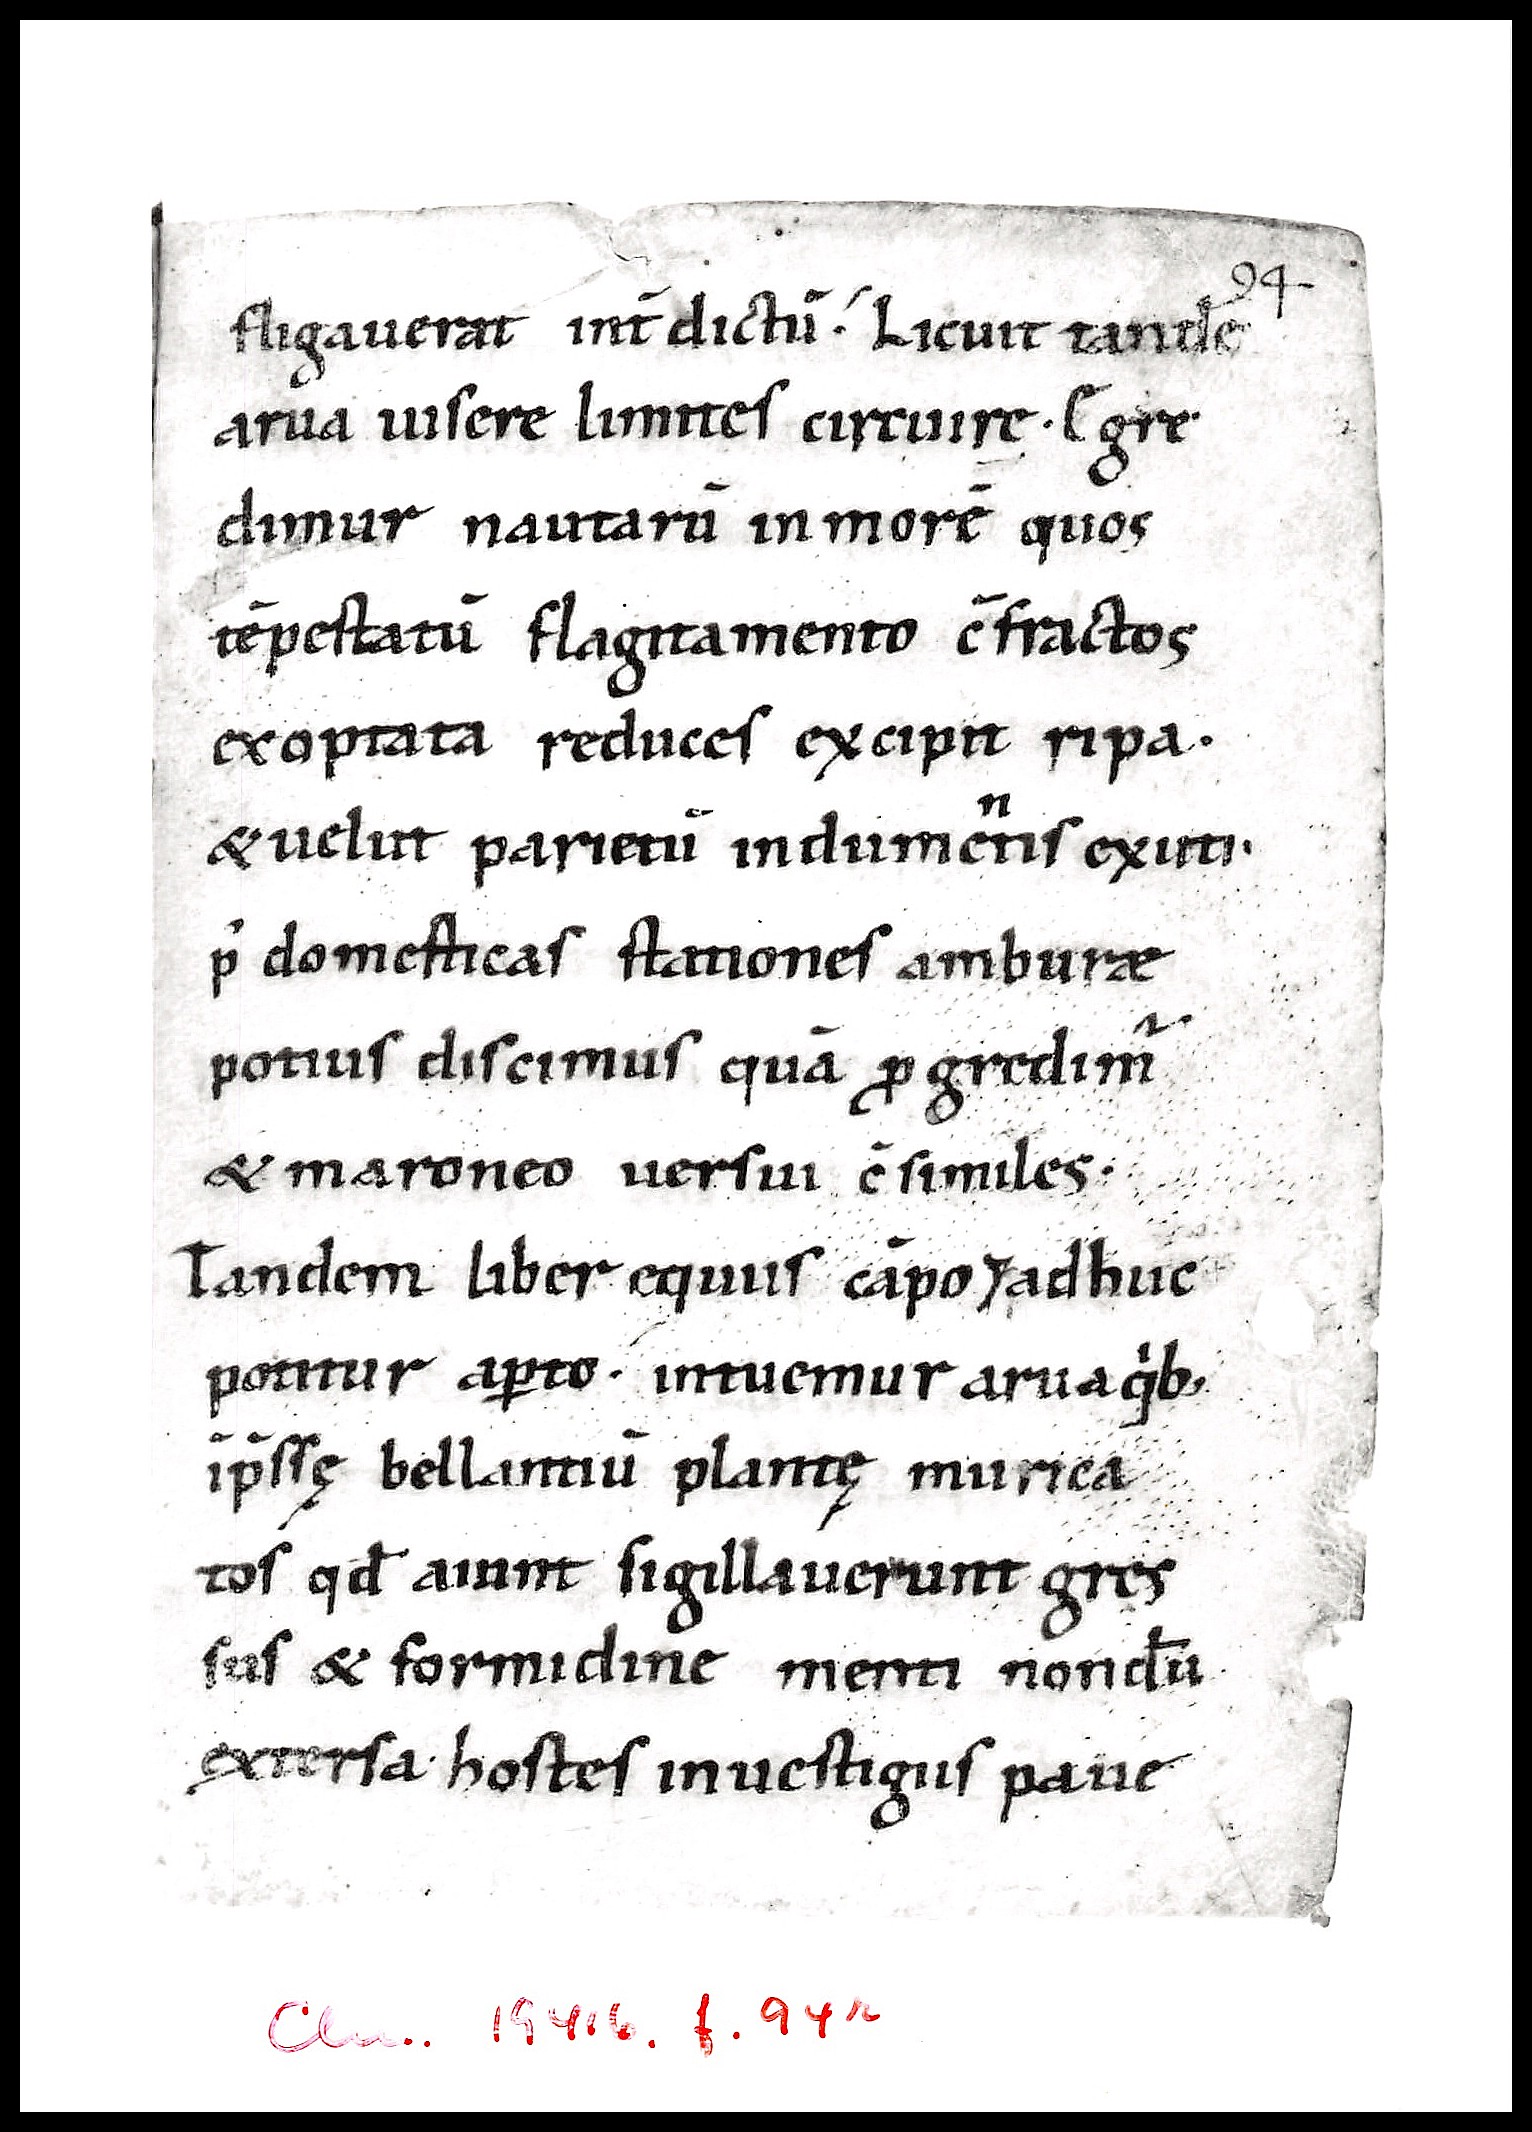 94
fligauerat int̄ dictū. Licuit tandē
arua uisere limites circuire. Egre
dimur nautarū in morē quos
tēpestatū flagitamento c̄fractos
exoptata reduces excipit ripa.
& uelut parietū indumentis exuti.
p̾ domesticas stationes amburæ
potius discimus quā ꝓgredim᷑
& maroneo uersui c̄similes.
Tandem liber equus cāpo ⁊ adhuc
potitur aꝑto. intuemur arua qͥb;
īp̄ssę bellantiū plantę murica
tos qđ aiunt sigillauerunt gres
sus & formidine menti nondū
extersa. hostes inuestigiis paue
Clm. 19416. f. 94r